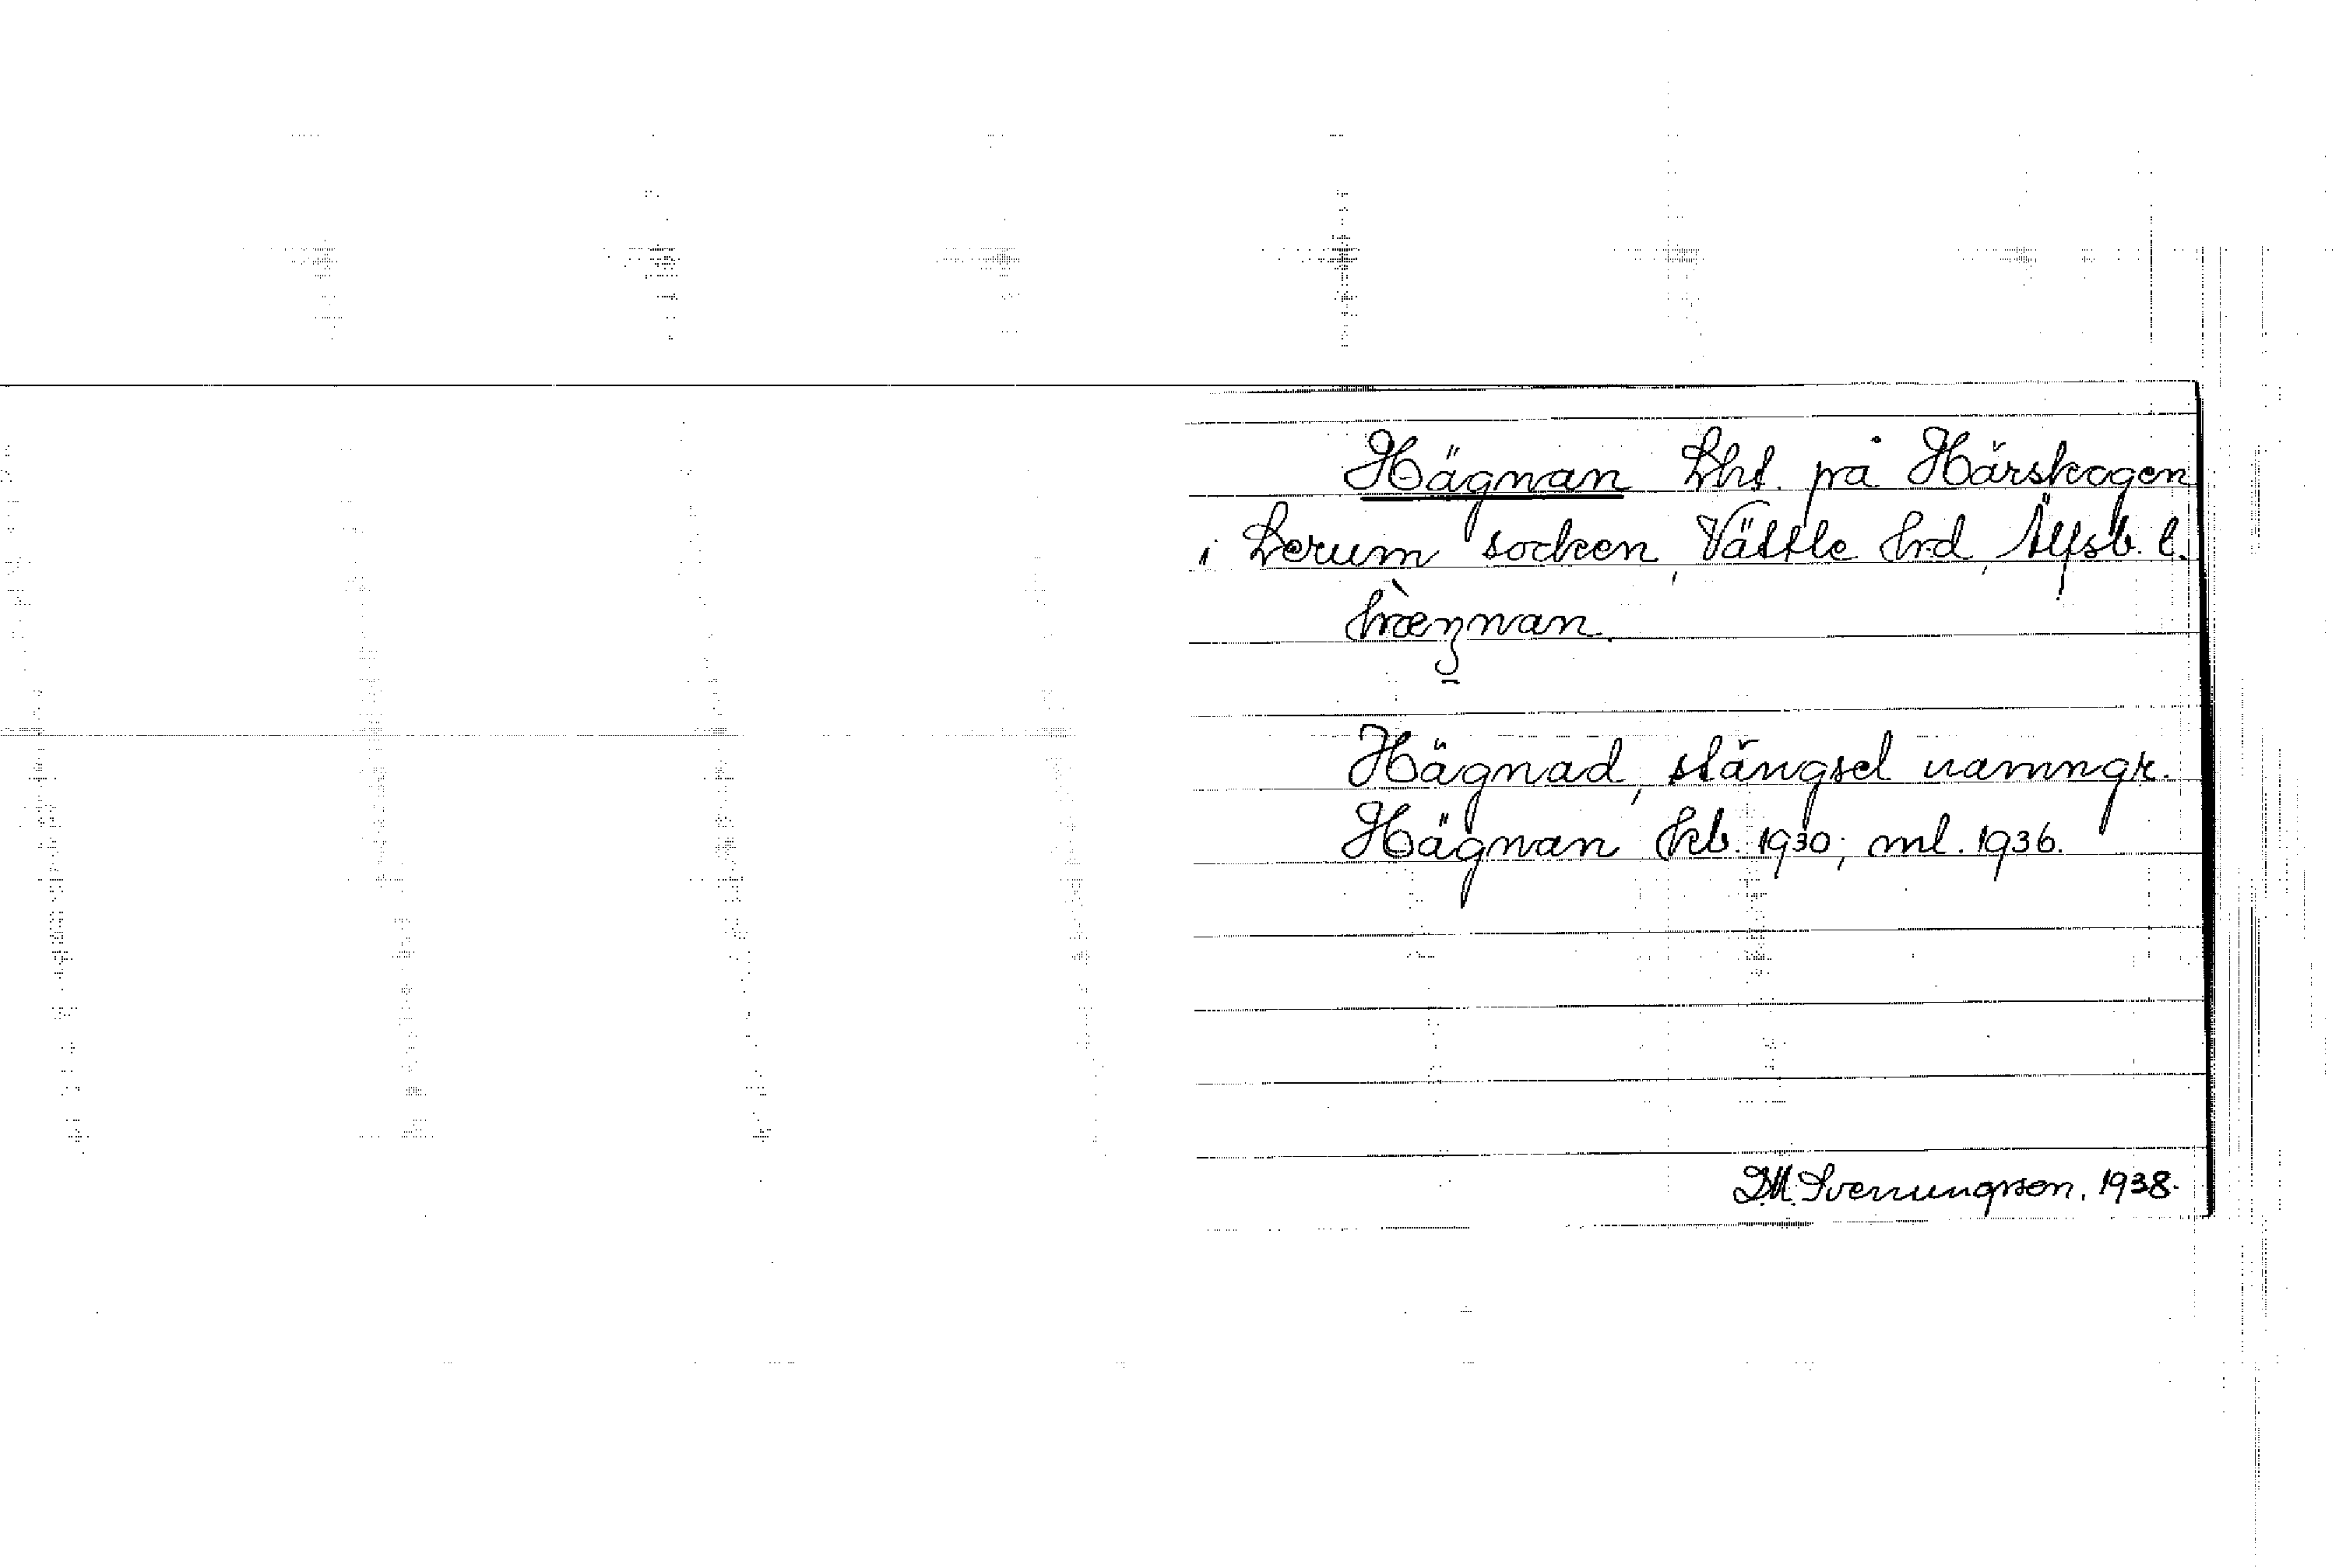 Hägnan Lht. på Härskogen
i Lerum socken, Vättle hrd, Älfsb. l.
hæŋnan.
Hägnad, stängsel namngr.
Hägnan kb. 1930; ml. 1936.
DM Svenungsson. 1938.